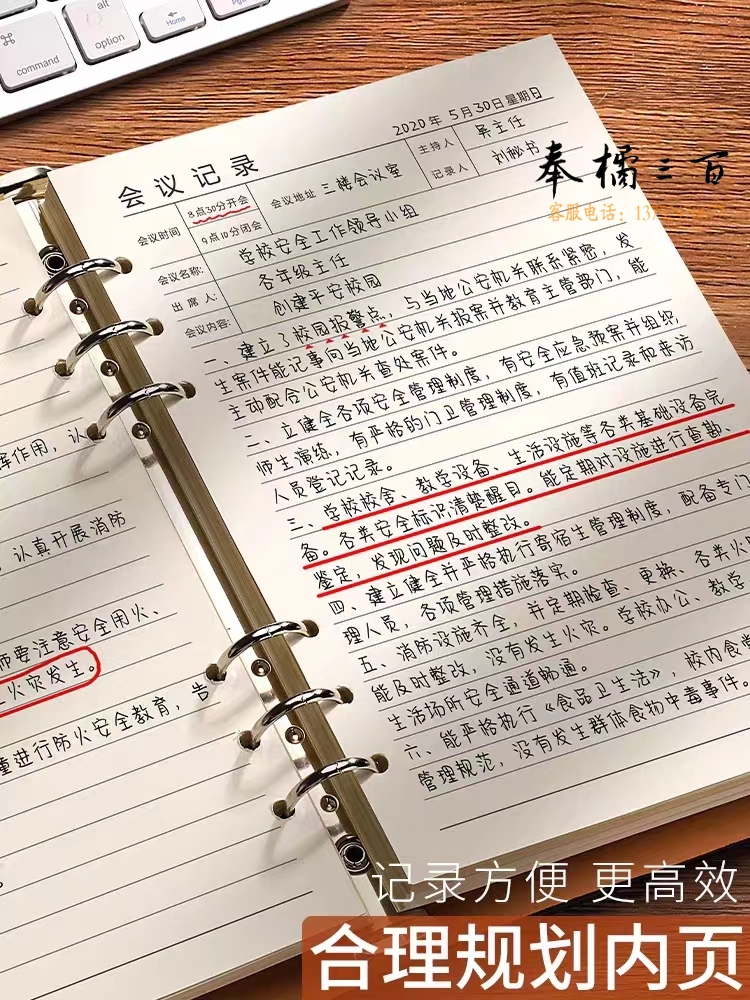 alt
command
option
Home
2020年 5月30日星期日
会议记录
会议时间
8点30分开会
9点10分闭会
会议地址
三楼会议室
主持人
吴主任
记录人
刘秘书
会议名称:
学校安全工作领导小组
出席人:
各年级主任
会议内容:
创建平安校园
一、建立了校园报警点，与当地公安机关联系紧密，发
生案件能记事向当地公安机关报案并教育主管部门，能
主动配合公安机关查处案件。
二、立健全各项安全管理制度，有安全应急预案并组织
师生演练，有严格的门卫管理制度，有值班记录和来访
人员登记记录。
三、学校校舍、教学设备、生活设施等各类基础设备完
备。各类安全标识清楚醒目。能定期对设施进行查勘、
鉴定，发现问题及时整改。
四、建立健全并严格执行寄宿生管理制度，配备专门
理人员，各项管理措施落实。
五、消防设施齐全，并定期检查、更换、各类火
能及时整改，没有发生火灾。学校办公、教学
生活场所安全通道畅通。
六、能严格执行《食品卫生法》，校内食堂
管理规范，没有发生群体食物中毒事件。
挥作用，认
，认真开展消防
师要注意安全用火、
火灾发生。
进行防火安全教育，告
奉橘三百
客服电话：13
记录方便 更高效
合理规划内页